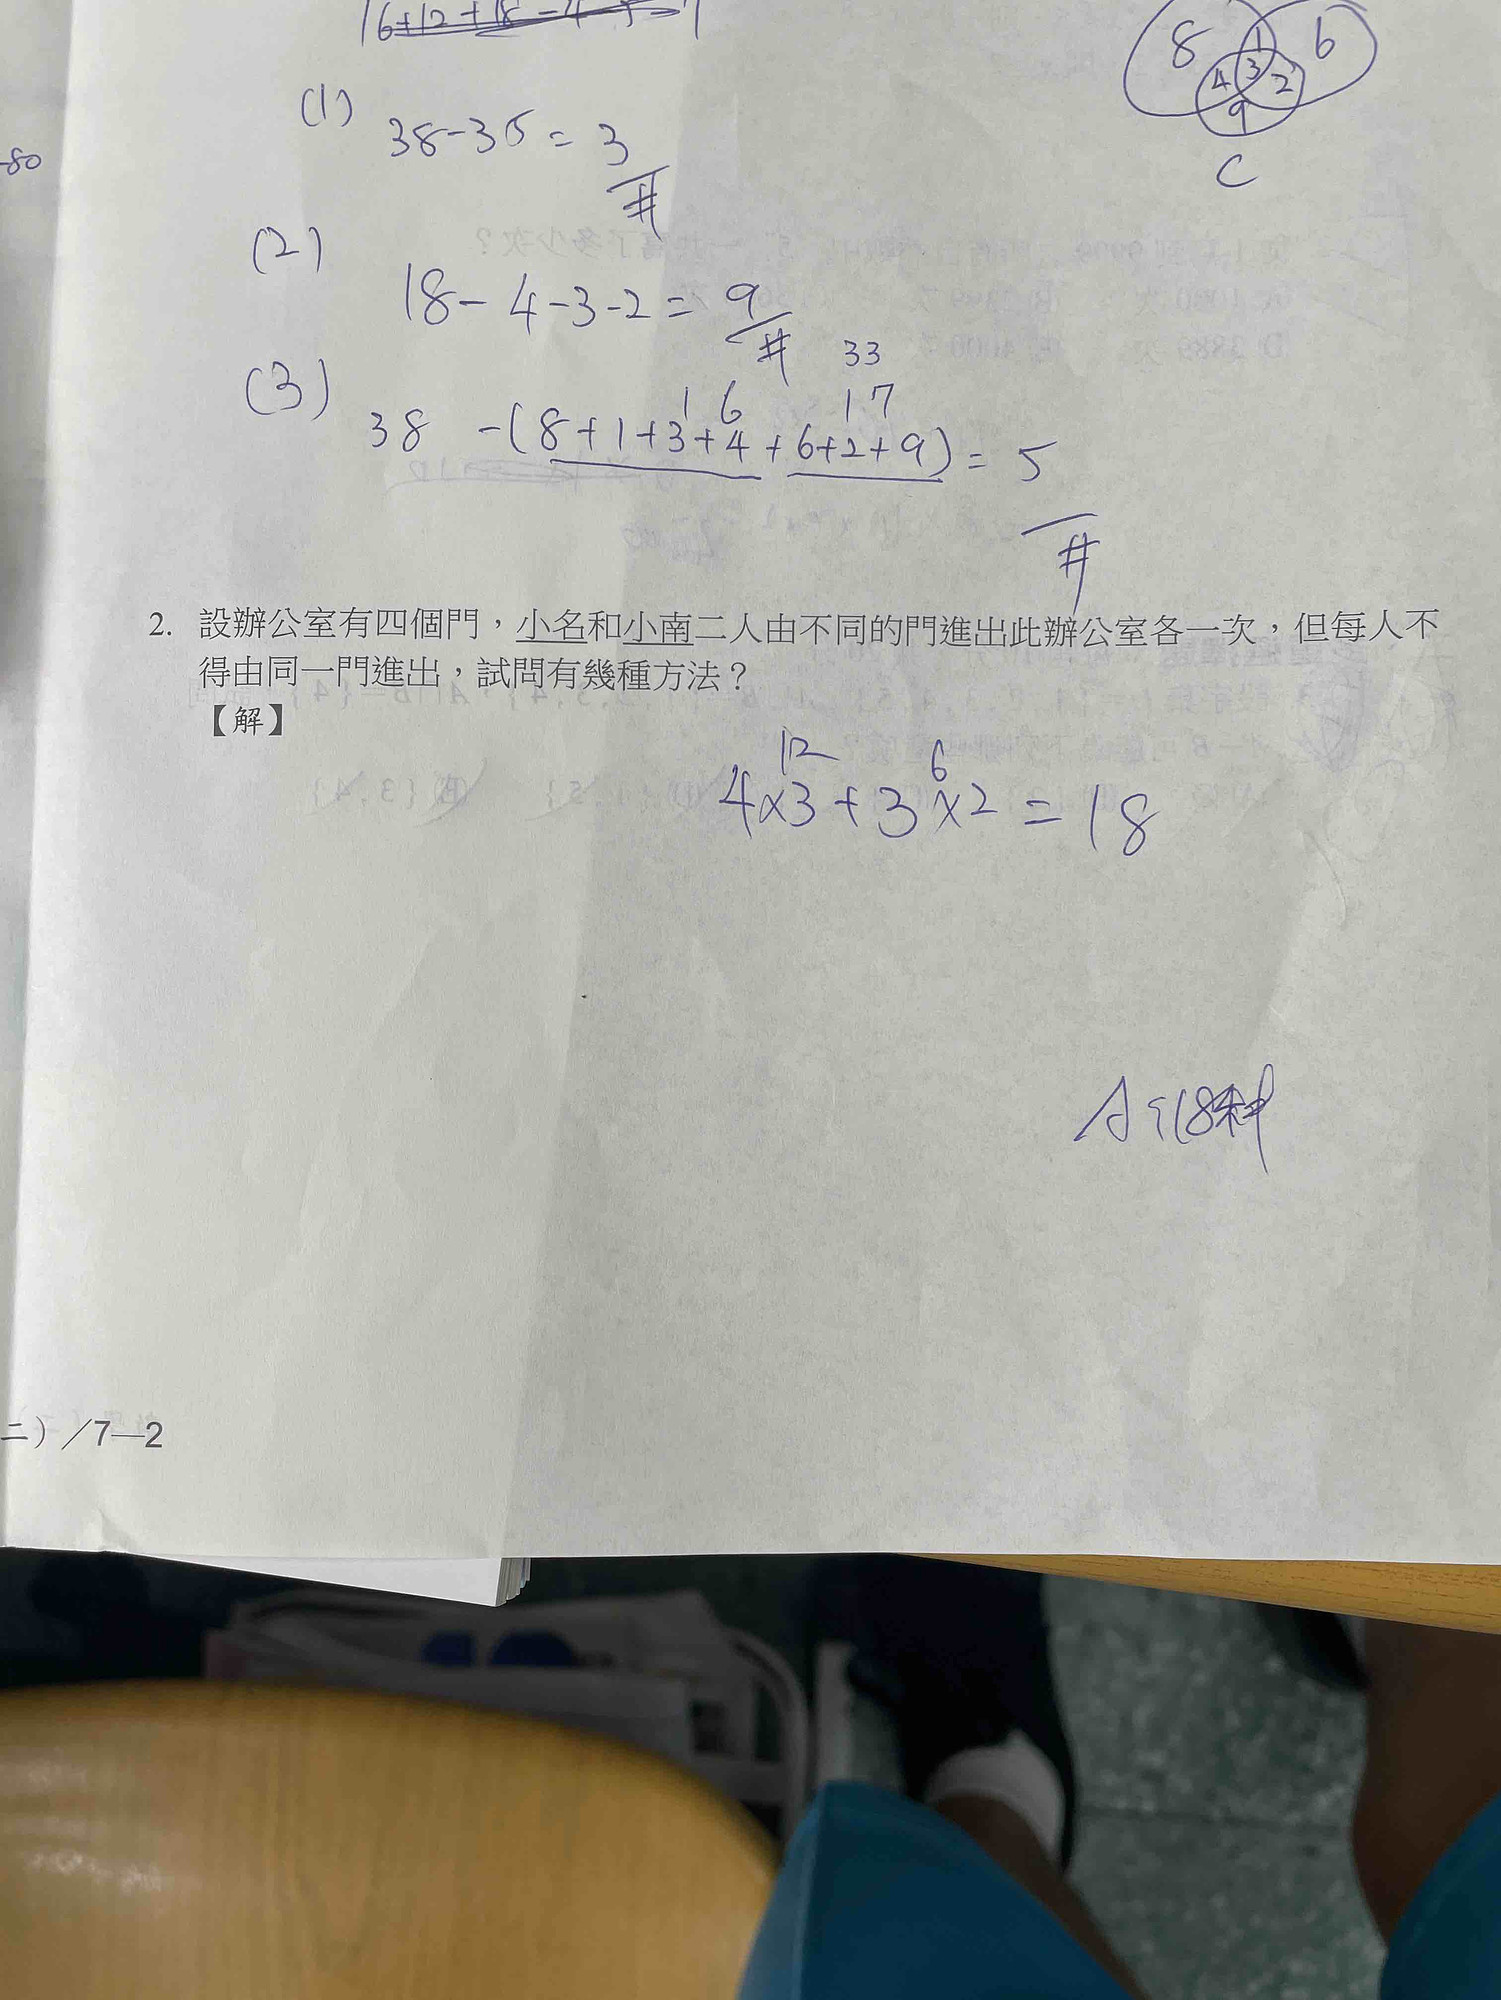 8 1 6
4 3 2
9
C
-80
(1) 38-35=3
#
(2) 18-4-3-2=9
#
33
16 17
(3) 38 -(8+1+3+4+6+2+9)=5
#
2. 設辦公室有四個門，小名和小南二人由不同的門進出此辦公室各一次，但每人不
得由同一門進出，試問有幾種方法？
【解】
12 6
4×3+3×2=18
A:18種
二）／7—2